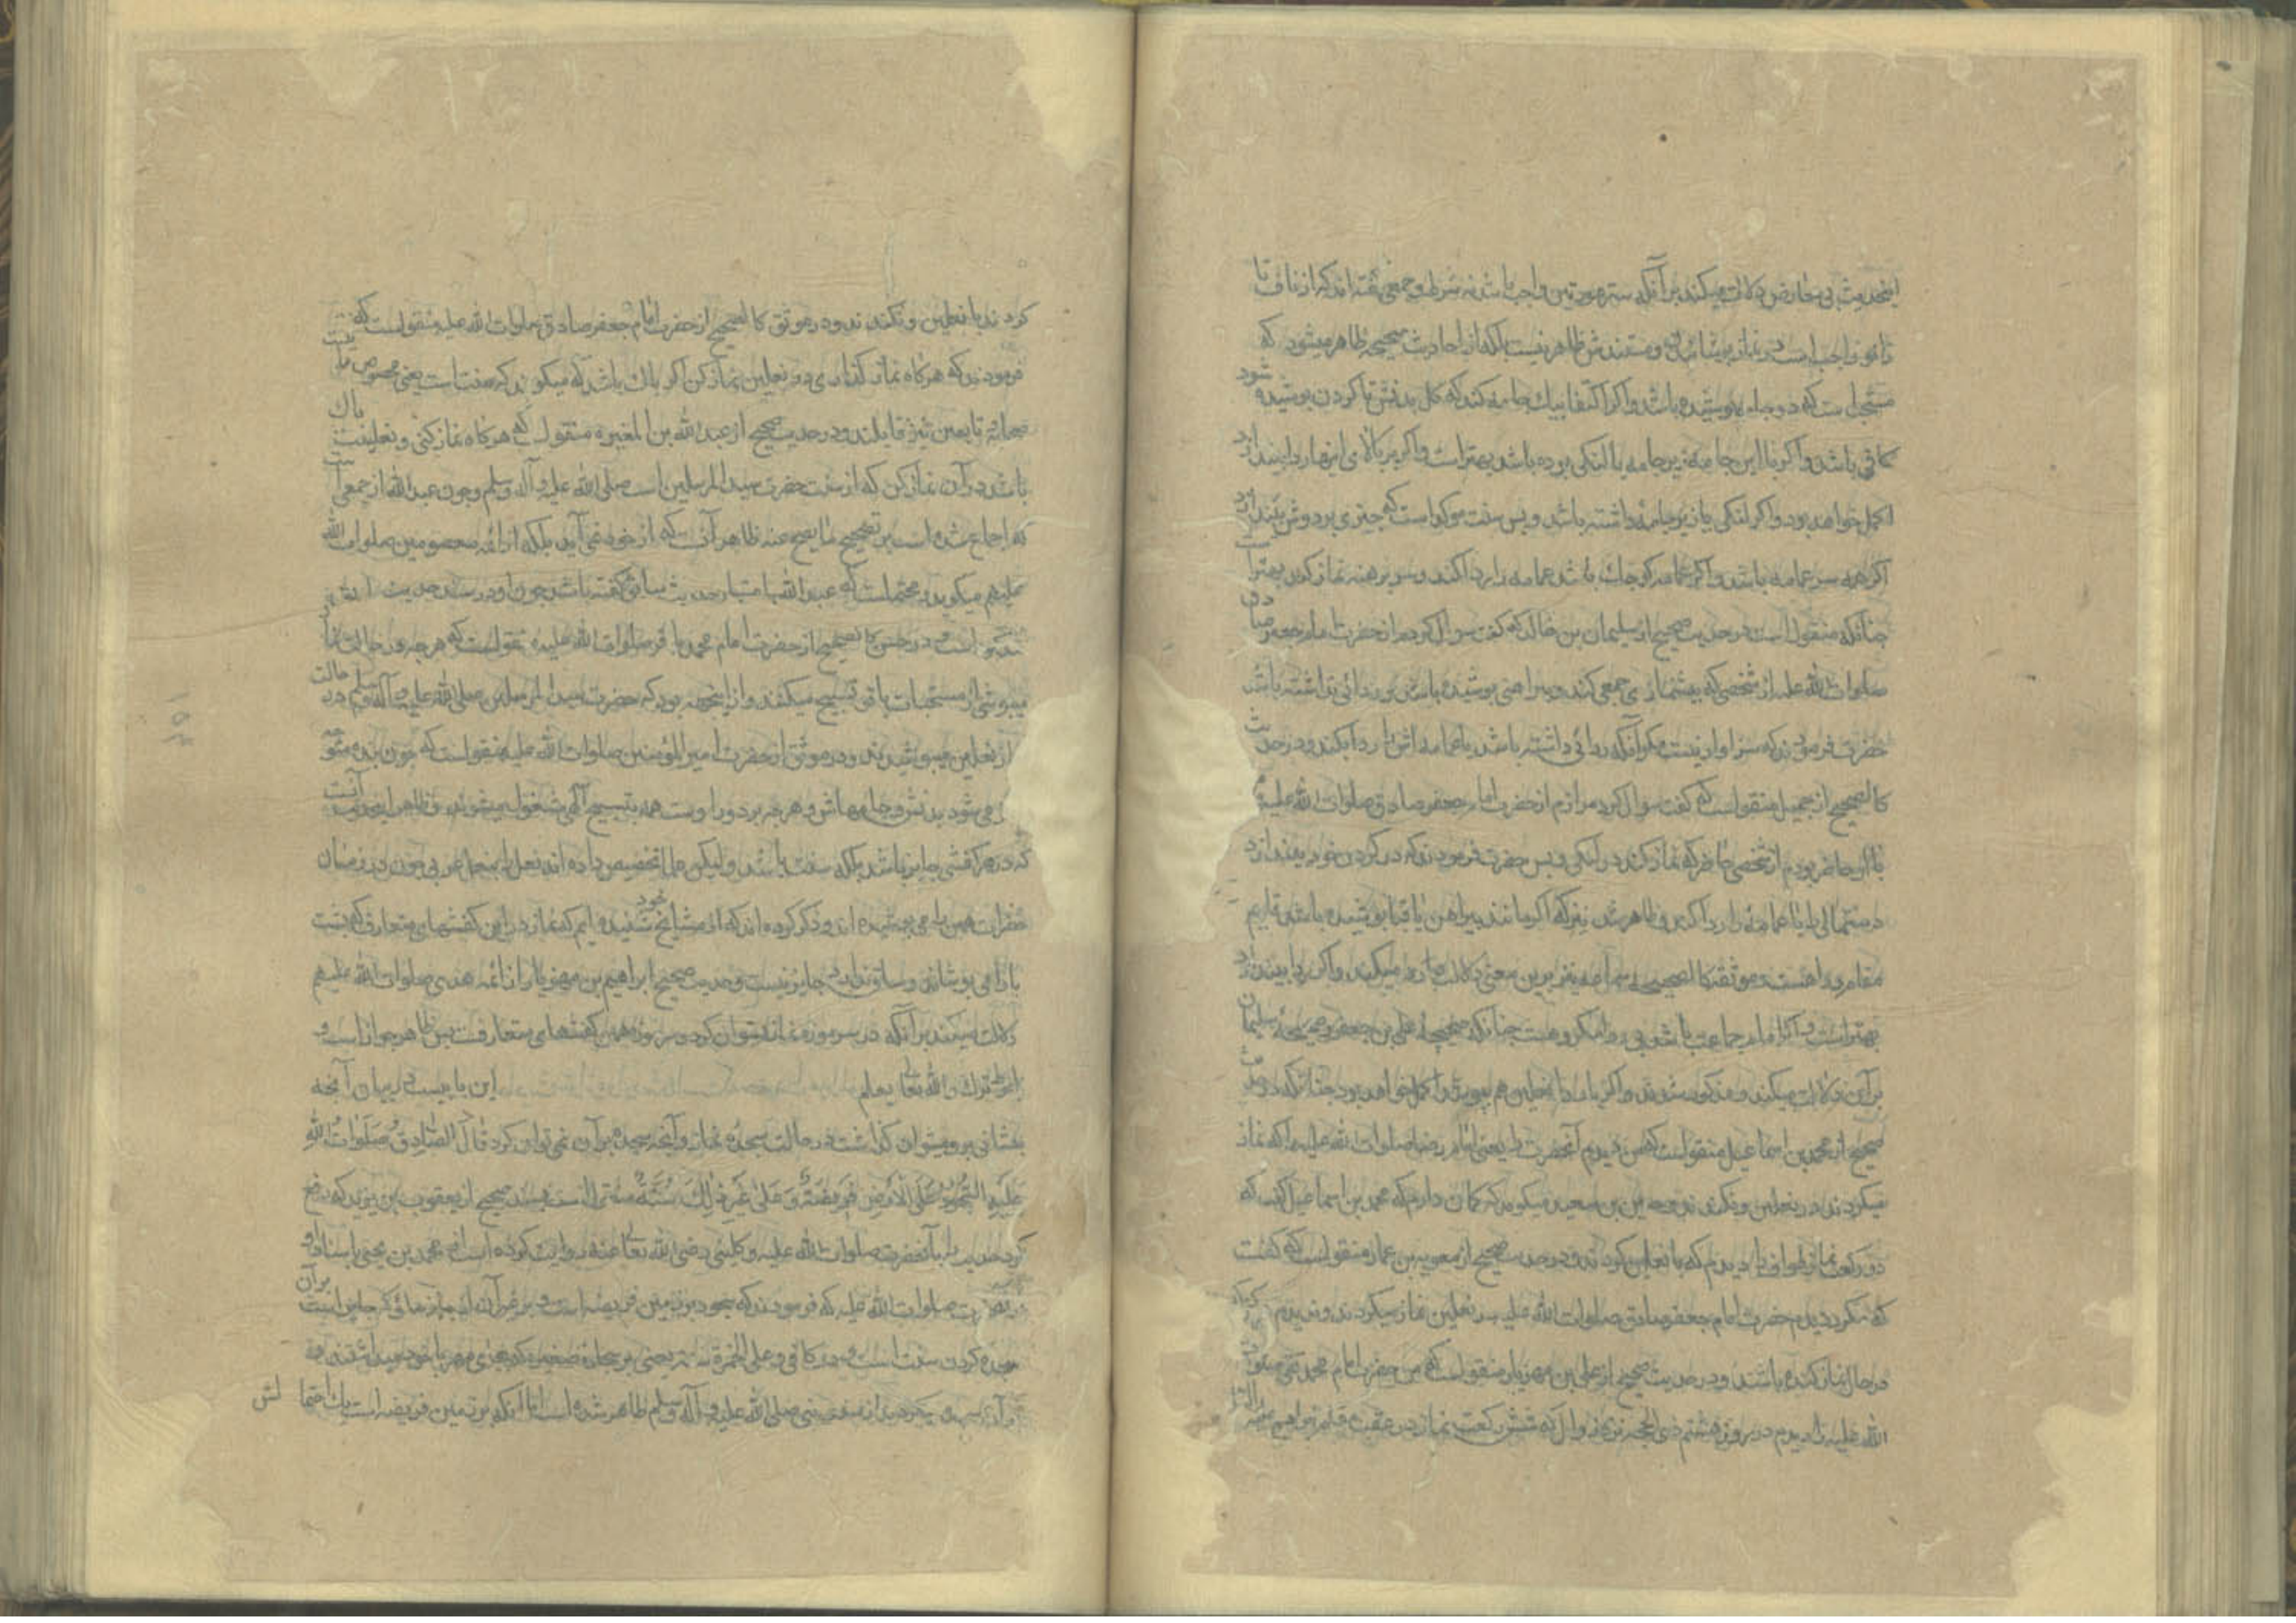 اینحدیث بی معارض دلالت میکند بر آنکه ستر عورتین واجب باشد نه شرط و جمعی گفته اند که از ناف تا
زانو واجب است در نماز پوشانیدن و مستندش ظاهر نیست بلکه از احادیث صحیحه ظاهر میشود که
مستحب است که دو جامه پوشیده باشد و اگر اکتفا بیک جامه کند که کل بدنش تا گردن پوشیده شود
کافی باشد و اگر با این جامه زیر جامه یا لنکی بوده باشد بهتر است و اگر بر بالای اینها ردا بیندازد
اکمل خواهد بود و اگر لنکی یا زیر جامه داشته باشد و بس سنت موکد است که چیزی بر دوش بیندازد
اگر همه سر عمامه باشد و اگر عمامه کوچک باشد عمامه را ردا کند و سر برهنه نماز کردن بهتر است
چنانکه منقول است در حدیث صحیح از سلیمان بن خالد که گفت سوال کردم از حضرت امام جعفر صادق
صلوات الله علیه از شخصی که پیشنمازی جمعی کند و پیراهنی پوشیده باشد و ردائی نداشته باشد
حضرت فرمودند که سزاوار نیست مکر آنکه ردائی داشته باشد یا عمامه اش را ردا بکند و در حدیث
کالصحیح از جمیل منقولست که گفت سوال کرد مرازم از حضرت امام جعفر صادق صلوات الله علیه و من
با او حاضر بودم از شخصی حاضر که نماز کند در لنکی و بس حضرت فرمودند که در گردن خود بیندازد
دستمالی را یا عمامه را ردا کند و ظاهر شد نیز که اگر مانند پیراهن یا قبا پوشیده باشد قایم
مقام ردا هست و موثقه کالصحیح نیز برین معنی دلالت میکند و اگر ردا بیندازد
بهتر است و اگر امام جماعت باشد بی ردا مکروهست چنانکه صحیحه علی بن جعفر و صحیحه سلیمان
بر آن دلالت میکند و مذکور شدند و اگر با ردا نعلین هم بپوشد اکمل خواهد بود چنانکه در حدیث
صحیح از محمد بن اسماعیل منقولست که من دیدم آنحضرت را یعنی امام رضا صلوات الله علیه را که نماز
میکردند در نعلین و نکندند و حسین بن سعید میکوید که کمان دارم که محمد بن اسماعیل گفت که
دو رکعت نماز طواف را دیدم که با نعلین کردند و در حدیث صحیح از معویه بن عمار منقولست که گفت
که مکرر دیدم حضرت امام جعفر صادق صلوات الله علیه در نعلین نماز میکردند و ندیدم که
در حال نماز کنده باشند و در حدیث صحیح از علی بن مهزیار منقولست که من حضرت امام محمد تقی صلوات
الله علیه را دیدم در روز هشتم ذی الحجه نزد زوال که شش رکعت نماز در عقب مقام ابراهیم علیه السلام
کردند با نعلین و نکندند و در موثق کالصحیح از حضرت امام جعفر صادق صلوات الله علیه منقولست که
فرمودند که هر گاه نماز گذاری در نعلین نماز کن اگر پاک باشد که میکویند که سنت است یعنی مخصوص ما نیست
صحابه و تابعین نیز قایلند و در حدیث صحیح از عبد الله بن المغیره منقولست که هر گاه نماز کنی و نعلینت پاک
باشد در آن نماز کن که از سنت حضرت سید المرسلین است صلی الله علیه و آله و سلم و چون عبد الله از جمعی است
که اجماع شده است بر تصحیح ما یصح عنه ظاهر آنست که از خود نمی آید بلکه از ائمه معصومین صلوات الله
علیهم میکوید و محتملست که عبد الله باعتبار حدیث سابق گفته باشد چون او در سند حدیث سابق نیز
است و در حسن کالصحیح از حضرت امام محمد باقر صلوات الله علیه منقولست که هر چه در حالت نماز
میپوشی از مستحبات باقی تسبیح میکنند و از اینجهه بود که حضرت سید المرسلین صلی الله علیه و آله و سلم در حالت
نماز نعلین میپوشیدند و در موثق از حضرت امیر المؤمنین صلوات الله علیه منقولست که چون بنده متوجه
نماز می شود بدنش و جامهاش و هر چه بر دور اوست همه بتسبیح آلهی مشغول میشوند و ظاهر اینحدیث آنست
که در هر کفشی جایز باشد بلکه سنت باشد ولیکن علما تخصیص داده اند نعل را بنعل عربی چون در زمان
حضرات همین را می پوشیده اند و ذکر کرده اند که از مشایخ خود شنیده ایم که نماز در این کفشهای متعارف که پشت
پا را می پوشاند و ساق ندارد جایز نیست و حدیث صحیح ابراهیم بن مهزیار از ائمه هدی صلوات الله علیهم
دلالت میکند بر آنکه در سرموزه نماز میتوان کرد و سرموزه همین کفشهای متعارفست پس ظاهر جواز است و
احوط ترک والله تعالی یعلم این بابیست در بیان آنچه
پیشانی برو میتوان گذاشت در حالت سجده نماز و آنچه سجده بر آن نمی توان کرد قَالَ الصَّادِقُ صَلَوَاتُ اللهِ
عَلَیْهِ السُّجُودُ عَلَی الْأَرْضِ فَرِیضَةٌ وَعَلَی غَیْرِ ذٰلِکَ سُنَّةٌ منقولست بسند صحیح از یعقوب بن یزید که رفع
کرد حدیث را بآنحضرت صلوات الله علیه و کلینی رضی الله تعالی عنه روایت کرده است از محمد بن یحیی باسناد او
از حضرت صلوات الله علیه که فرمودند که سجود بر زمین فریضه است و بر غیر آن از چیزهائی که جایز است بر آن
سجده کردن سنت است و در کافی و علی الخمرة سنة یعنی بر سجاده صغیره که بجای مهر با خود میداشتند و
بر آن سجده میکردند از سنت نبی صلی الله علیه و آله و سلم ظاهر شده است اما آنکه بر زمین فریضه است یک احتمالش